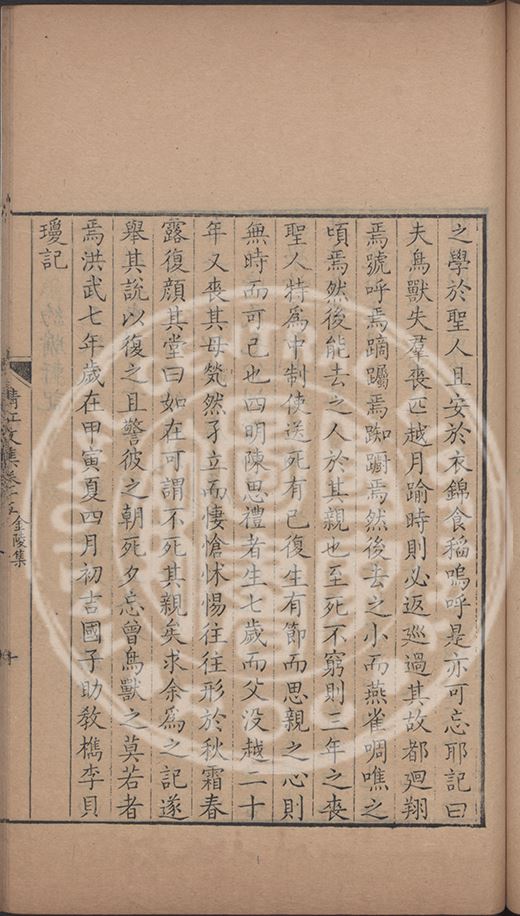 之學於聖人且安於衣錦食稻嗚呼是亦可忘耶記曰
夫鳥獸失羣喪匹越月踰時則必返巡過其故都迴翔
焉號呼焉蹢躅焉踟躕焉然後去之小而燕雀啁噍之
頃焉然後能去之人於其親也至死不窮則三年之喪
聖人特爲中制使送死有已復生有節而思親之心則
無時而可已也四明陳思禮者生七歲而父没越二十
年又喪其母煢然孑立而悽愴怵惕往往形於秋霜春
露復顔其堂曰如在可謂不死其親矣求余爲之記遂
舉其說以復之且警彼之朝死夕忘曾鳥獸之莫若者
焉洪武七年歲在甲寅夏四月初吉國子助教檇李貝
瓊記
清江文集卷十五 金陵集